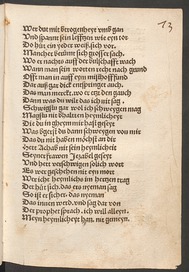 13
Wer dut mit berogenheyt vmb gan
Und spannt sein lefftzen wie eyn tor
Do hüt ein yeder weiß sich vor.
Mancher berümt sich grosser sach.
Wo er nachts auff der bulschafft wach
Wann man sein worten recht nach grund
Offt man in auff eym mißthauff fund
Dar auß gar dick entspringt auch.
Das eyner wirt zu eym gauch
Dann was du wilt das ich nit sag.
Schweig ich gar wol ich schweygen mag
Magstu nit bhalten heymlicheyt
Die du in gheym mir hast geseyt
Was begerst du dann schweygen von mir
Das du nit haben möchst an dir
Hett Achab nit sein heymlicheit
Seyner frawen Jezabel geseyt
Und hett verschwigen solich wort
Es wer geschehen nit eyn mort
Wer icht heymlichs im hertzen trag
Der hüt sich, das ers nyeman sag
So ist er sicher, das nyeman
Das innen werd, vnd sag dar von
Der prophet sprach, ich will alleyn.
Meyn heymlicheyt han, nit gemeyn.